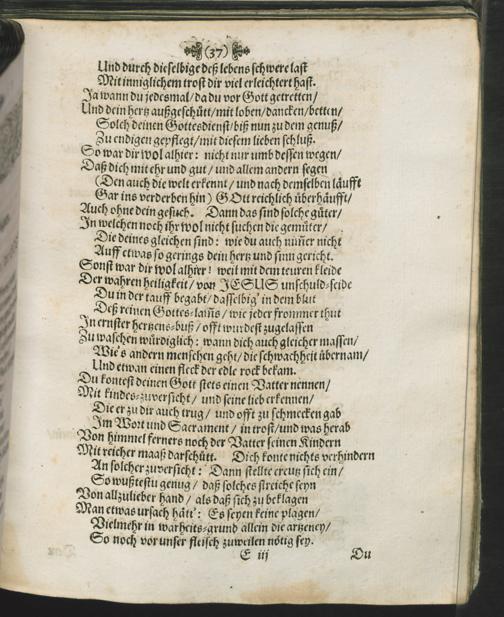 (37)
Und durch dieselbige deß lebens schwere last
Mit inniglichem trost dir viel erleichtert hast.
Ja wann du jedesmal/ da du vor Gott getretten/
Und dein hertz außgeschütt/ mit loben/ dancken/ betten/
Solch deinen Gottesdienst/ biß nun zu dem genuß/
Zu endigen gepflegt/ mit diesem lieben schluß.
So war dir wol alhier: nicht nur umb dessen wegen/
Daß dich mit ehr und gut/ und allem andern segen
(Den auch die welt erkennt/ und nach demselben läufft
Gar ins verderben hin) GOtt reichlich überhäufft/
Auch ohne dein gesuch. Dann das sind solche güter/
In welchen noch ihr wol nicht suchen die gemüter/
Die deines gleichen sind: wie du auch nim̃er nicht
Auff etwas so gerings dein hertz und sinn gericht.
Sonst war dir wol alhier! weil mit dem teuren kleide
Der wahren heiligkeit/ von JESUS unschuld-seide
Du in der tauff begabt/ dasselbig' in dem blut
Deß reinen Gottes-lam̃s/ wie jeder frommer thut
In ernster hertzens-buß/ offt wurdest zugelassen
Zu waschen würdiglich: wann dich auch gleicher massen/
Wie's andern menschen geht/ die schwachheit übernam/
Und etwan einen fleck der edle rock bekam.
Du kontest deinen Gott stets einen Vatter nennen/
Mit kindes-zuversicht/ und seine lieb erkennen/
Die er zu dir auch trug/ und offt zu schmecken gab
Im Wort und Sacrament/ in trost/ und was herab
Von himmel ferners noch der Vatter seinen Kindern
Mit reicher maaß darschütt. Dich konte nichts verhindern
An solcher zuversicht: Dann stellte creutz sich ein/
So wußtestu genug/ daß solches streiche seyn
Von allzulieber hand/ als daß sich zu beklagen
Man etwas ursach hätt': Es seyen keine plagen/
Vielmehr in warheits-grund allein die artzeney/
So noch vor unser fleisch zuweilen nötig sey.
E iij
Du